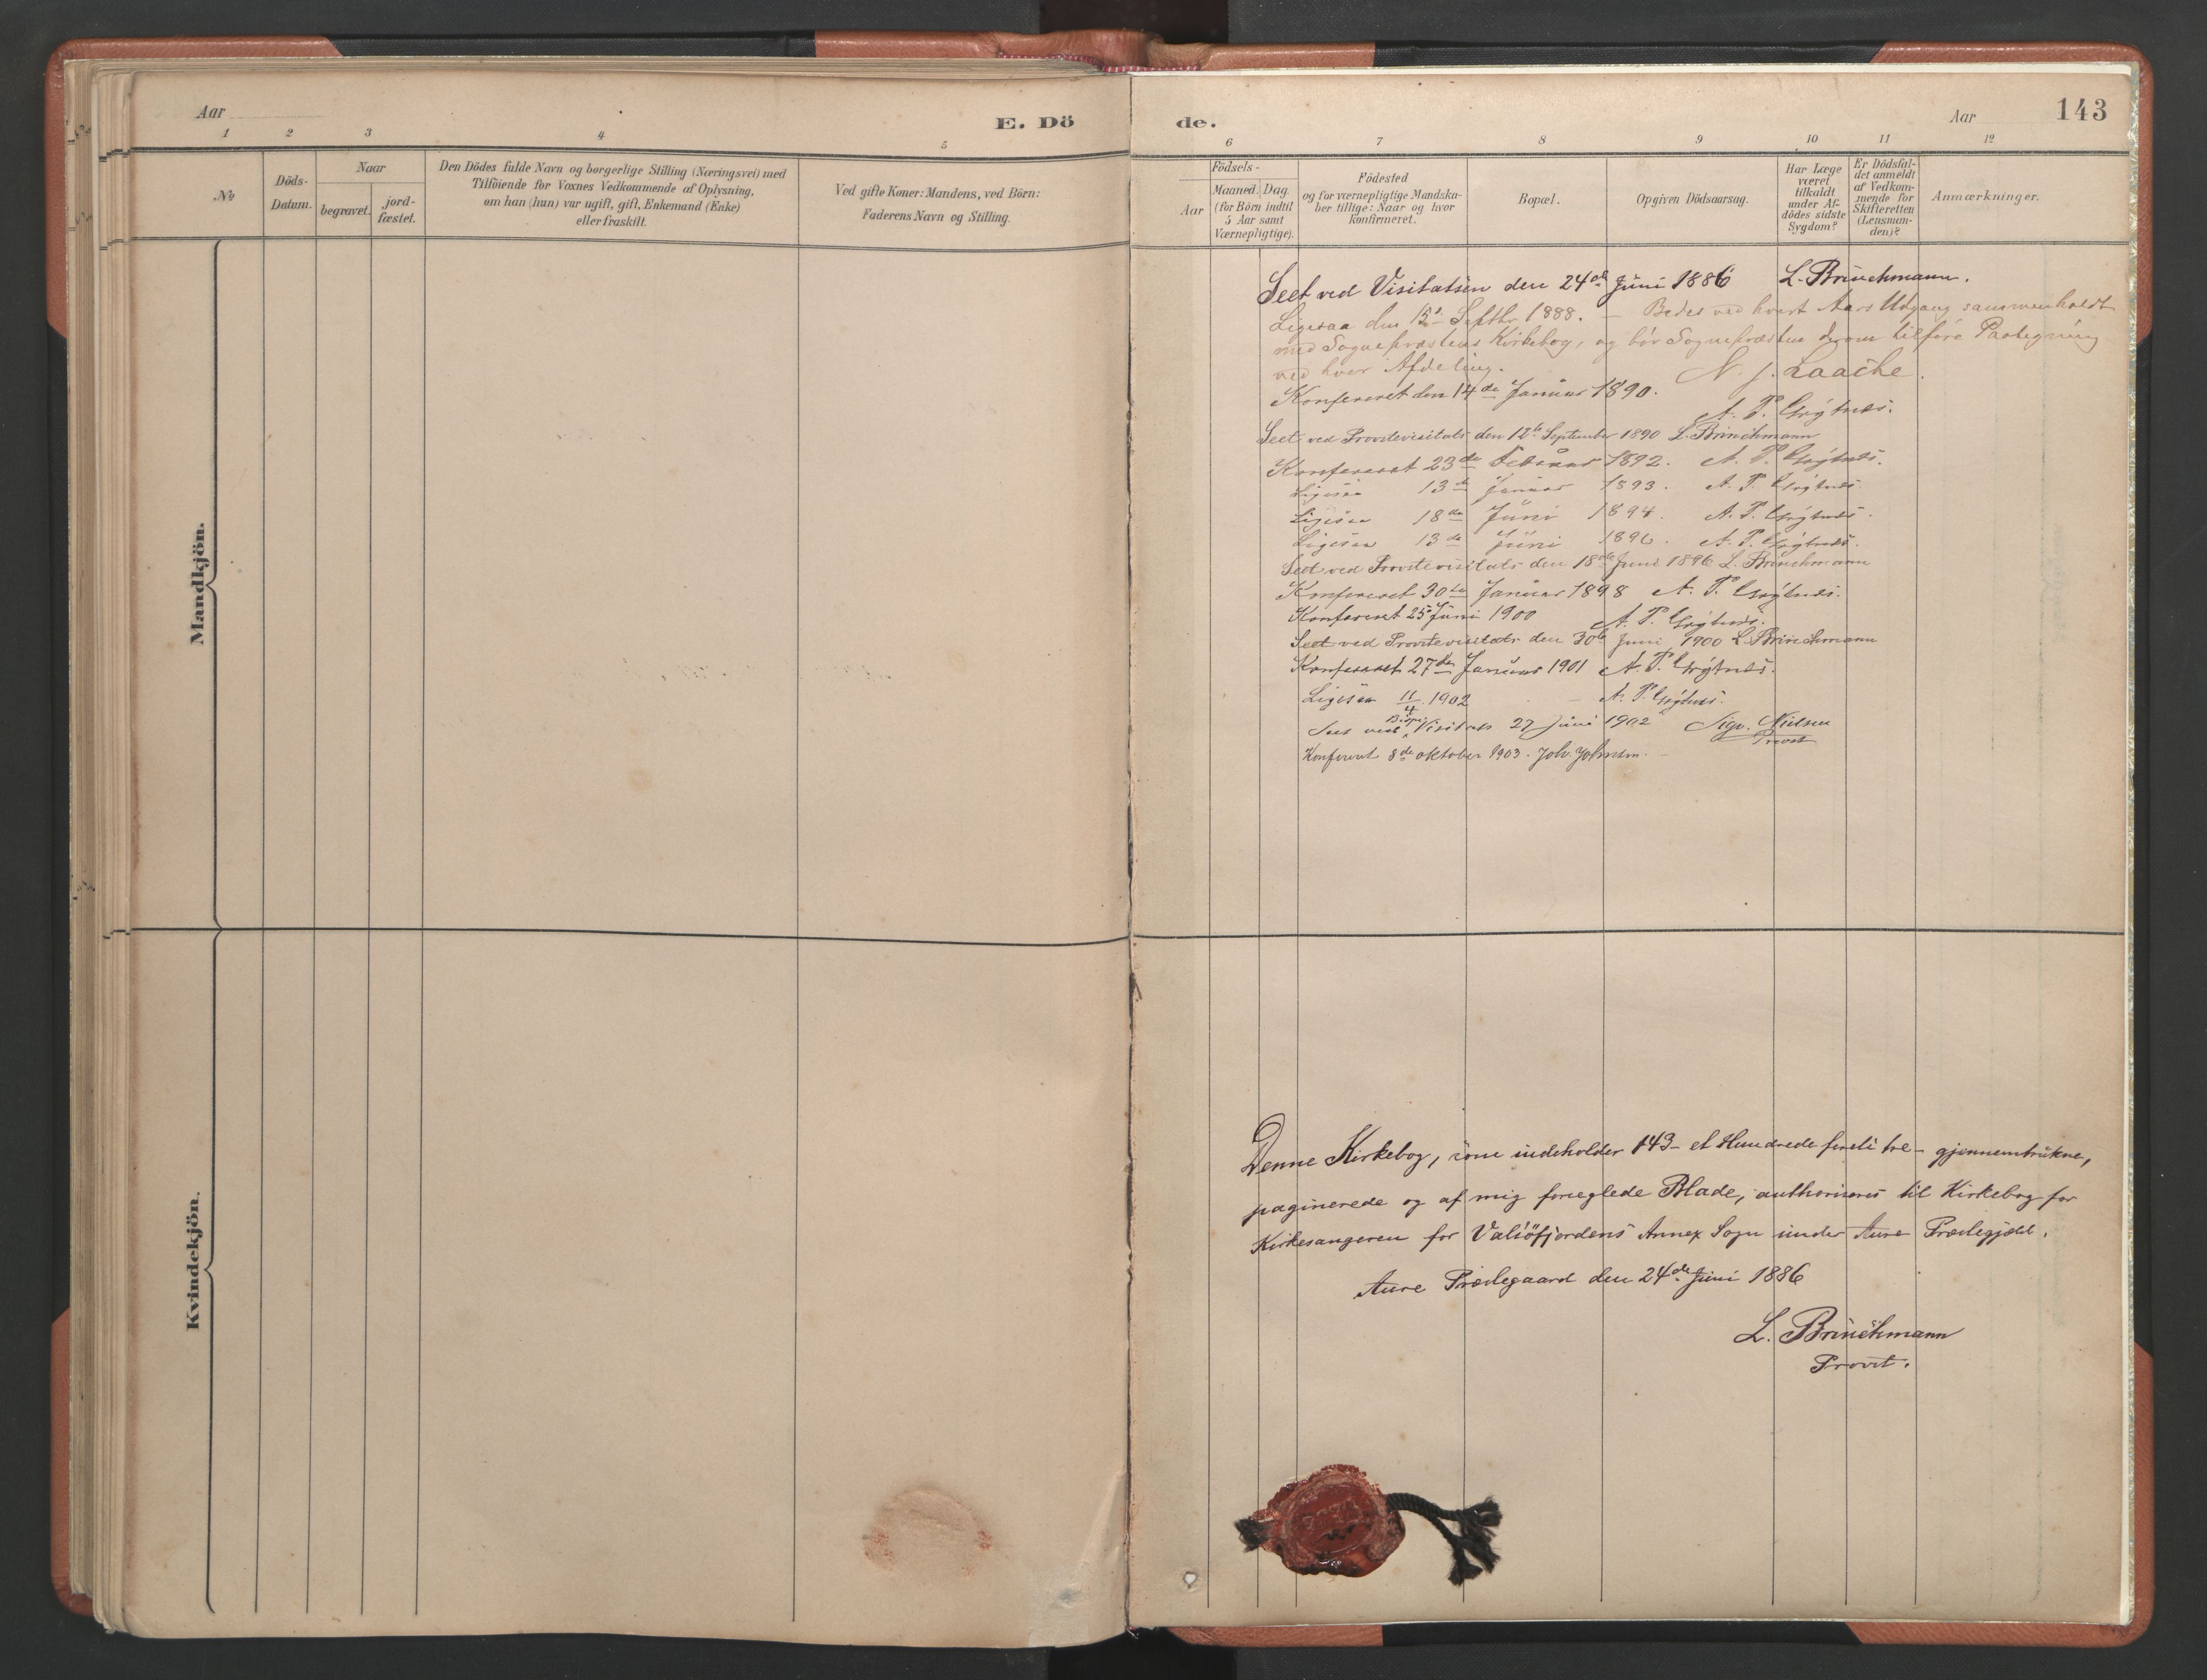 Aar
E. Dö
1
2
3
4
5
№
Döds-
Datum.
Naar
begravet.
jord-
fæstet.
Den Dödes fulde Navn og borgerlige Stilling (Næringsvei) med
Tilföiende for Voxnes Vedkommende af Oplysning,
om han (hun) var ugift, gift, Enkemand (Enke)
eller fraskilt.
Ved gifte Koner: Mandens, ved Börn:
Faderens Navn og Stilling.
Mandkjön.
Kvindekjön.
de.
Aar
143
6
7
8
9
10
11
12
Födsels-
Aar
Maaned. Dag.
(for Börn indtil
5 Aar samt
Værnepligtige).
Födested
og for værnepligtige Mandska-
ber tillige: Naar og hvor
konfirmeret.
Bopæl.
Opgiven Dödsaarsag.
Har Læge
været
tilkaldt
under Af-
dödes sidste
Sygdom?
Er Dödsfal-
det anmeldt
af Vedkom-
mende for
Skifteretten
(Lensman-
den)?
Anmærkninger.
Seet ved Visitatsen den 24de Juni 1886 L. Brinchmann.
Ligesaa den 15de Septbr 1888. – Bedes ved hvert Aars Udgang sammenholdt
med Sognepræstens Kirkebog, og bör Sognepræsten derom tilföre Paategning
ved hver Afdeling. N. J. Laache.
Konfereret den 14de Januar 1890.
A. P. Grÿtnes.
Seet ved Provstevisitats den 12te September 1890 L. Brinchmann
Konfereret 23de Februar 1892. A. P. Grÿtnes.
Ligesaa 13de Januar 1893. A. P. Grÿtnes.
Ligesaa 18de Juni 1894. A. P. Grÿtnes.
Ligesaa 13de Juni 1896. A. P. Grÿtnes.
Seet ved Provstevisitats den 18de Juni 1896 L. Brinchmann
Konfereret 30te Januar 1898 A. P. Grÿtnes.
Konfereret 25 Juni 1900 A. P. Grÿtnes.
Seet ved Provstevisitats den 30te Juni 1900 L. Brinchmann
Konfereret 27de Januar 1901 A. P. Grÿtnes.
Ligesaa 11/4 1902 A. P. Grÿtnes.
Seet ved Bispe Visitats 27 Juni 1902 Sigv. Nielsen
Provst
Konfereret 8de oktober 1903. Joh. Johnsen.
Denne Kirkebog, som indeholder 143 – et Hundrede firti tre – gjennemtrukne,
paginerede og af mig forseglede Blade, authoriseres til Kirkebog for
Kirkesangeren for Valsöfjordens Annex Sogn under Aure Præstegjæld.
Aure Præstegaard den 24de Juni 1886
L. Brinchmann
Provst.